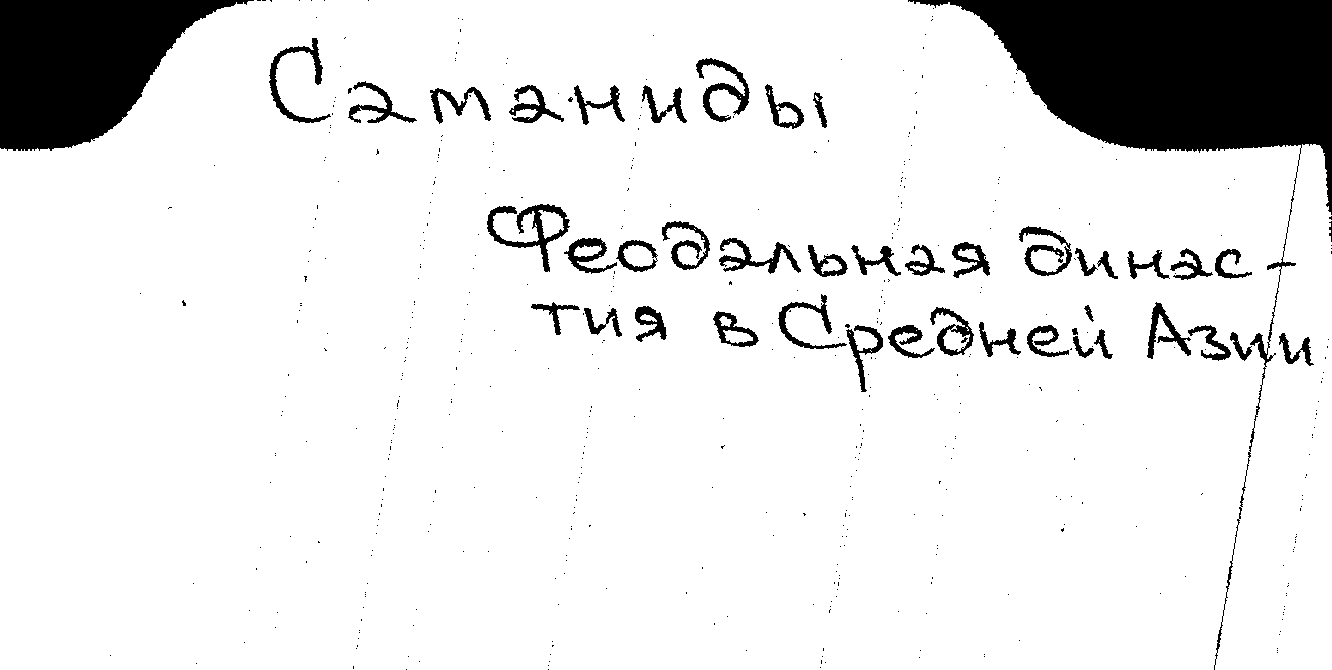 Саманиды
Феодальная динас-
тия в Средней Азии